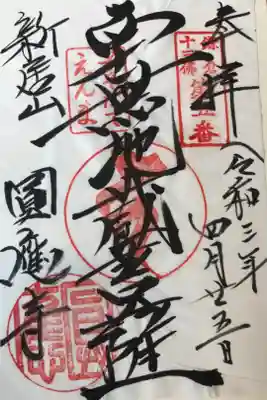 奉拝
令和三年
四月廿五日
十三佛
第五番
南無地蔵菩薩
えんま
新居山
圓應寺